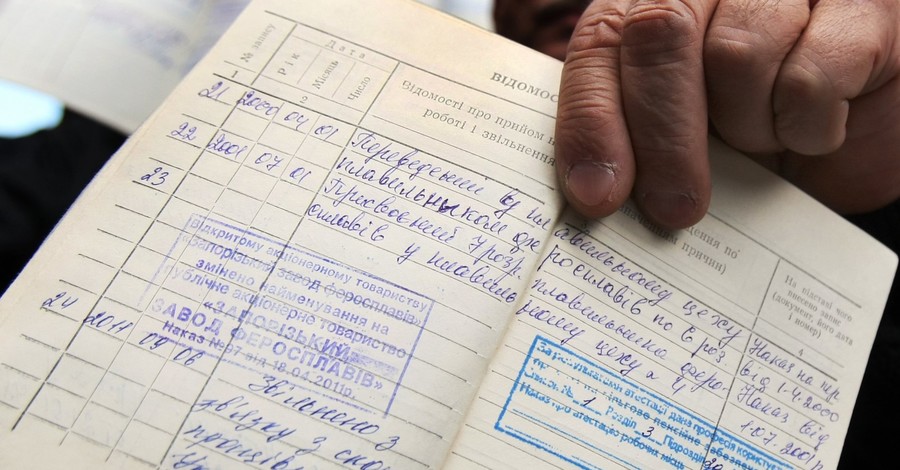 ВІДОМОС
№ запису
Дата
Рік
Місяць
Число
Відомості про прийом н
роботі і звільнення
ведення по
причини)
На підставі чого
внесено запис
(документ, його дата
і номер)
1
4
21 2000 04 01
Переведений у пл
авильному цеху
Наказ на пер
плавильником фе
росплавів по 6 роз
від 1.4.2000
22 2001 07 01
Присвоєний 7 розр.
плавильника феро
Наказ від
сплавів у плавиль
ному цеху
1.07.2001
23
Відкритому акціонерному товариству
«Запорізький завод феросплавів»
змінено найменування на
публічне акціонерне товариство
«ЗАПОРІЗЬКИЙ
ЗАВОД ФЕРОСПЛАВІВ»
наказ №97 від 18.04.2011р.
За результатами атестації дана професія користу
пільгове пенсійне забезпе
Список № 1 Розділ 3 Підрозділ
Наказ про атестацію робочих місць
24 2011 09 06
Звільнено з